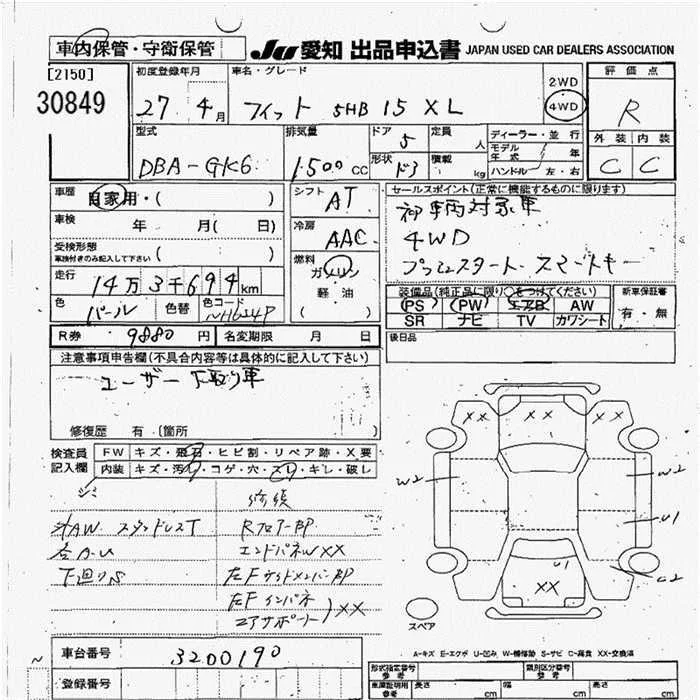 車内保管・守衛保管
JU 愛知 出品申込書 JAPAN USED CAR DEALERS ASSOCIATION
[2150]
30849
初度登録年月
27年 4月
車名・グレード
フィット 5HB 15 XL
2WD
4WD
評価点
R
外装 内装
C C
型式
DBA-GK6
排気量
1500 cc
ドア
5
形状
ドア
定員 人
積載 kg
ディーラー・並行
モデル年式 年
ハンドル 左・右
車歴
自家用・( )
車検 年 月( 日)
受検形態
車検付きのみ記入して下さい ( )
走行
14万3千694km
色
パール
色替
色コード
NH624P
シフト AT
冷房 AAC
燃料
ガソリン
軽油
( )
セールスポイント(正常に機能するものに限ります)
4WD
プッシュスタート スマートキー
装備品(純正品に限り○をつけてください)
PS PW エアB AW
SR ナビ TV カワシート
新車保証書
有・無
R券 9880 円
名変期限 月 日
後日品
注意事項申告欄(不具合内容等は具体的に記入して下さい)
ユーザー下取り車
修復歴 有 (箇所 )
検査員記入欄
FW キズ・飛石・ヒビ割・リペア跡・X要
内装 キズ・汚れ・コゲ・穴・スレ・キレ・破レ
シミ
修績
AW スタッドレスT
RフロアーAP
合A-U
エンドパネWXX
下廻りS
左FサイドメンバーAP
左Fインパネ
コアサポート XX
XX
XX
XX
W2
W2
U1
U1
C2
XX
スペア
A-キズ E-エクボ U-凹み W-補修跡 S-サビ C-腐食 XX-交換済
車台番号 3200190
登録番号
形式指定番号
参考
類別区分番号
参考
車庫証明用
参考
長さ cm
幅 cm
高さ cm